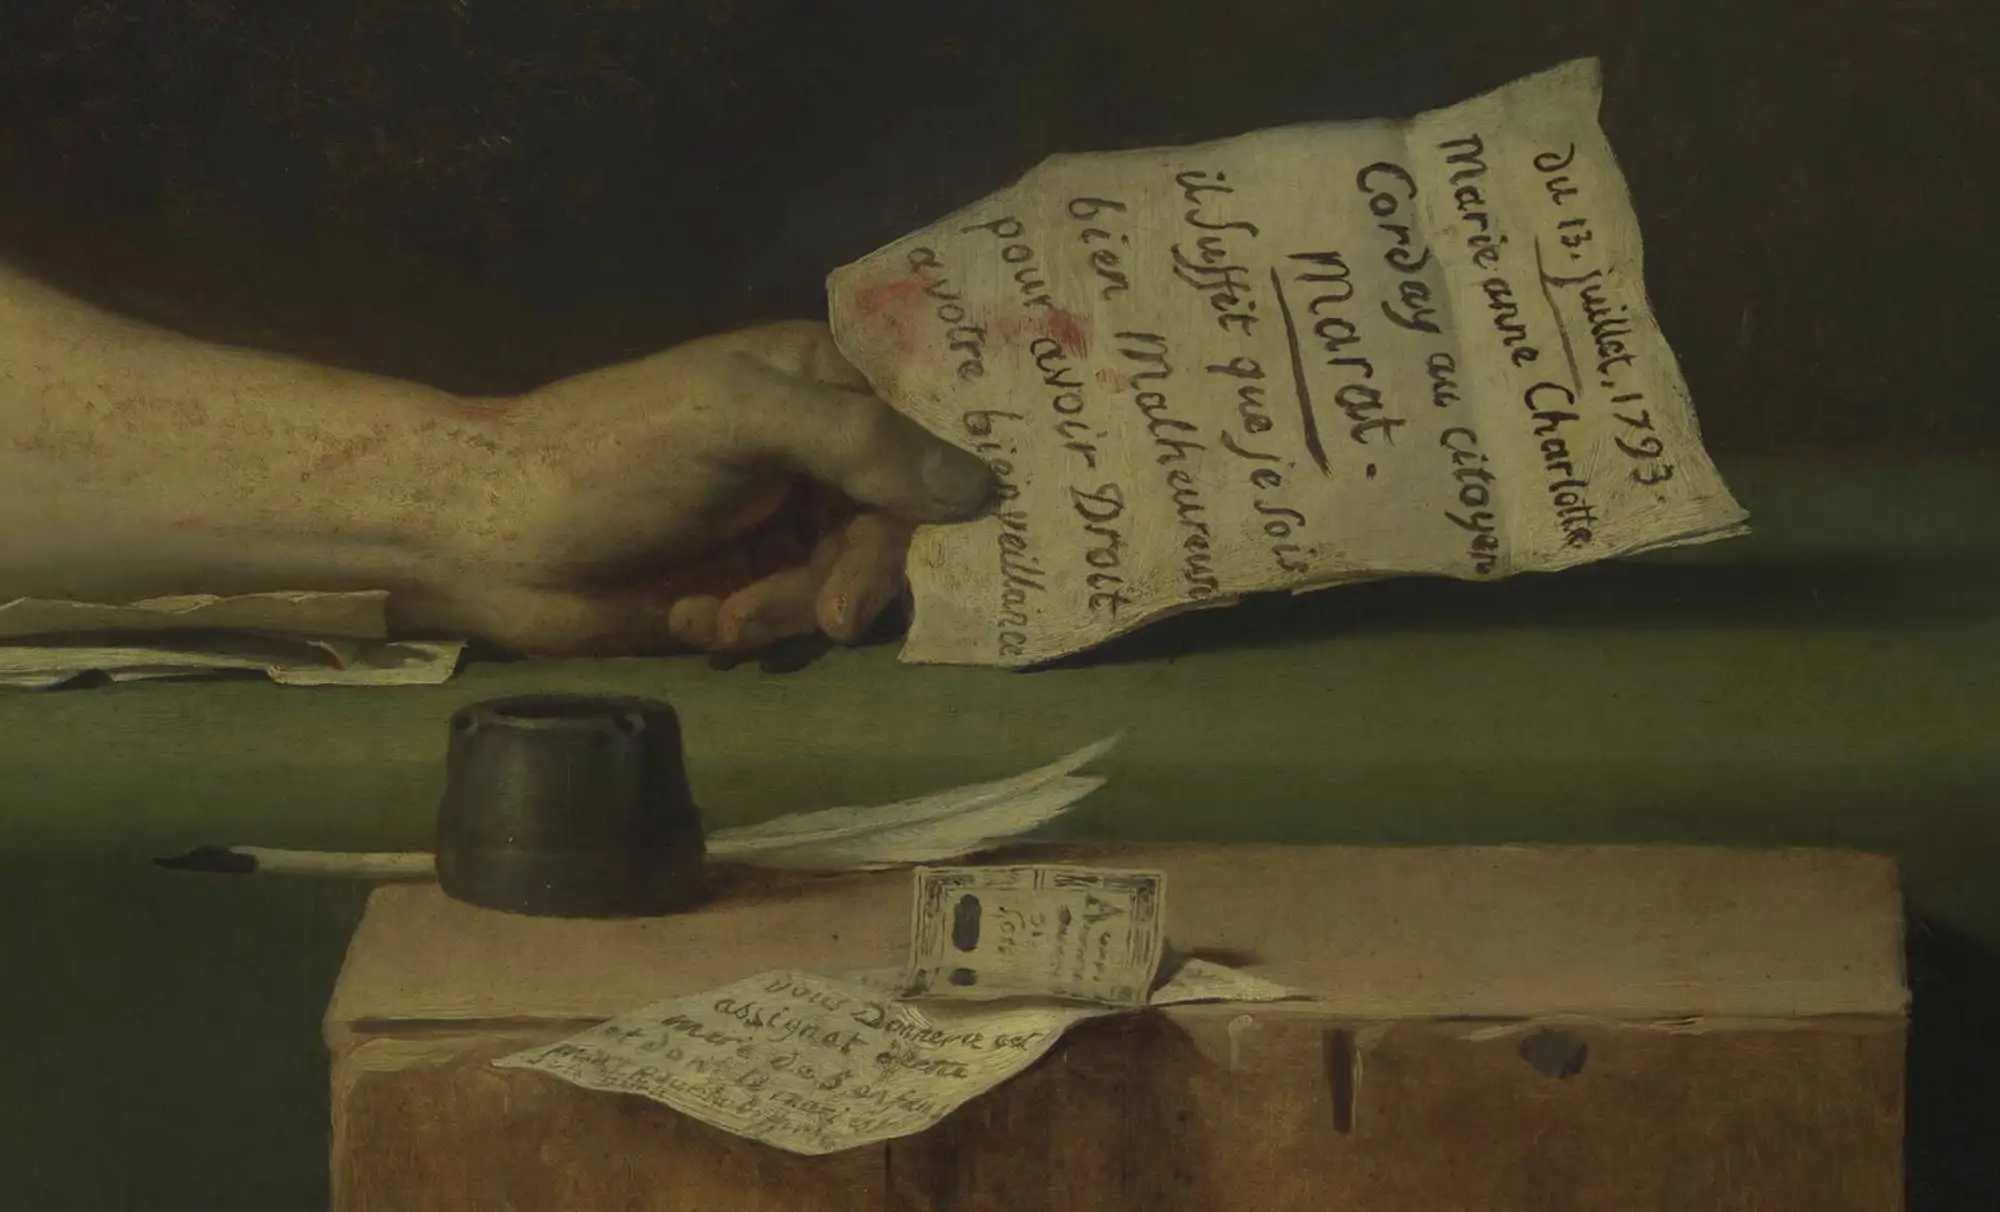 du 13. juillet, 1793.
Marie anne Charlotte
Corday au citoyen
Marat.
il suffit que je sois
bien Malheureuse
pour avoir Droit
a votre bienveillance
vous Donnerez cet
assignat à cette
mere de 5 enfans